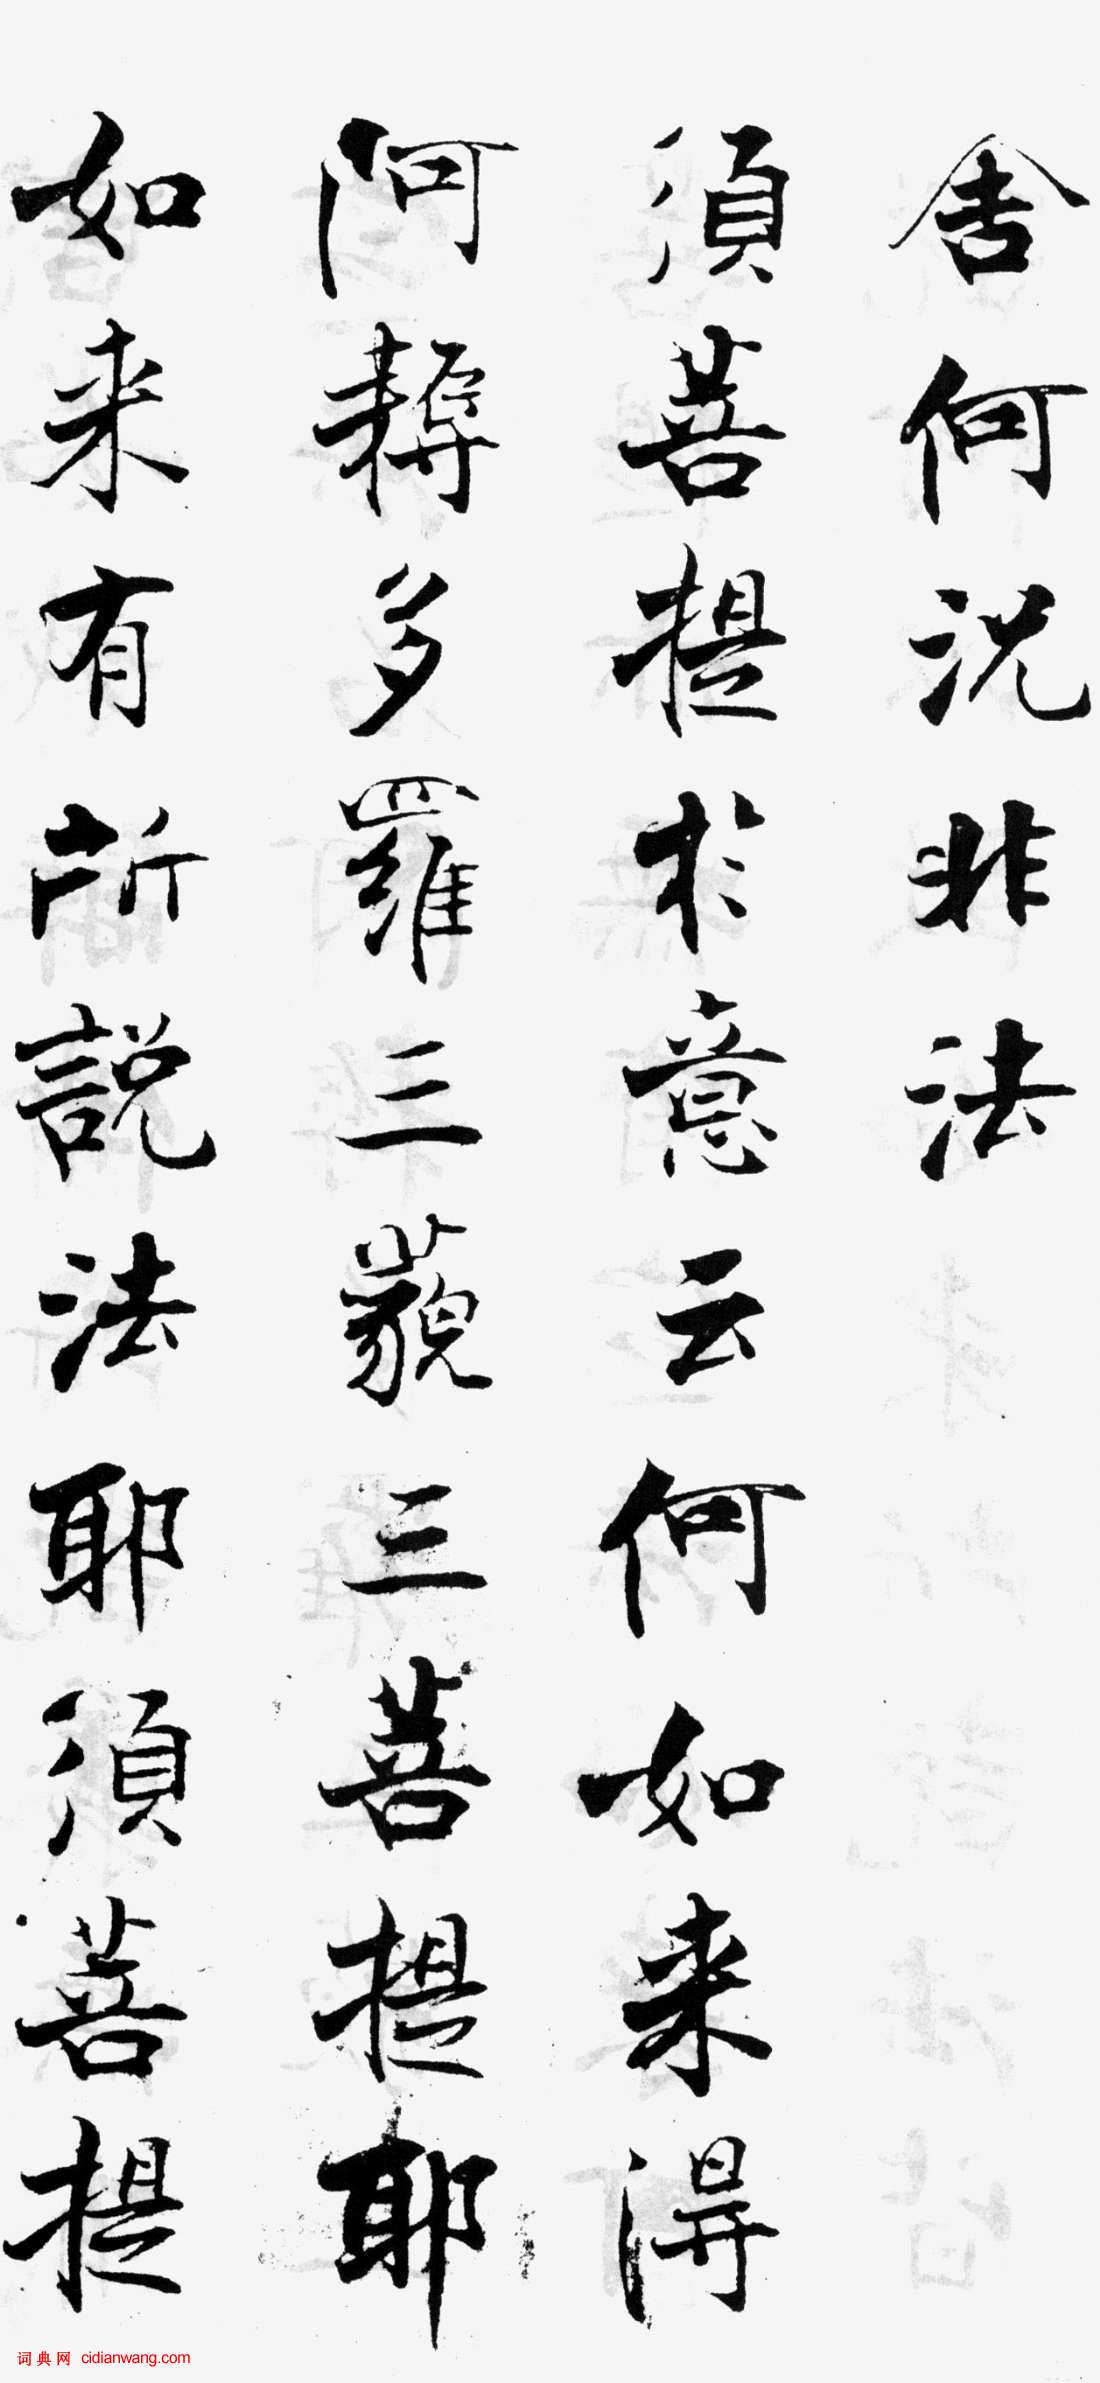 舍何況非法
須菩提於意云何如来得
阿耨多羅三藐三菩提耶
如来有所說法耶須菩提
词典网 cidianwang.com